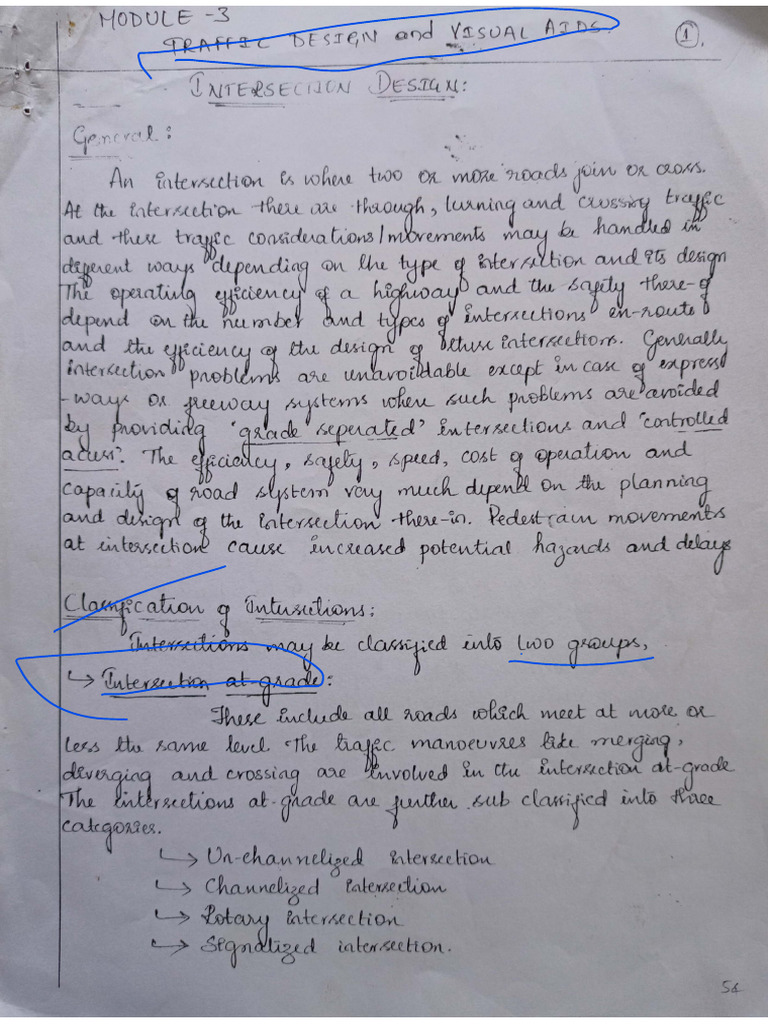 MODULE -3
TRAFFIC DESIGN and VISUAL AIDS.
1.
INTERSECTION DESIGN:
General:
An intersection is where two or more roads join or cross.
At the intersection there are through, turning and crossing traffic
and these traffic considerations/movements may be handled in
different ways depending on the type of intersection and its design
The operating efficiency of a highway and the safety there-of
depend on the number and types of intersections en-route
and the efficiency of the design of these intersections. Generally
intersection problems are unavoidable except in case of express
-ways or freeway systems where such problems are avoided
by providing 'grade seperated' intersections and 'controlled
access'. The efficiency, safety, speed, cost of operation and
capacity of road system very much depend on the planning
and design of the intersection there-in. Pedestrain movements
at intersection cause increased potential hazards and delays
Classification of Intersections:
Intersections may be classified into two groups,
↳ Intersection at-grade:
These include all roads which meet at more or
less the same level. The traffic manoeuvres like merging,
diverging and crossing are involved in the intersection at-grade
The intersections at-grade are further sub classified into three
categories.
↳ Un-channelized intersection
↳ Channelized intersection
↳ Rotary intersection
↳ Signalized intersection.
54